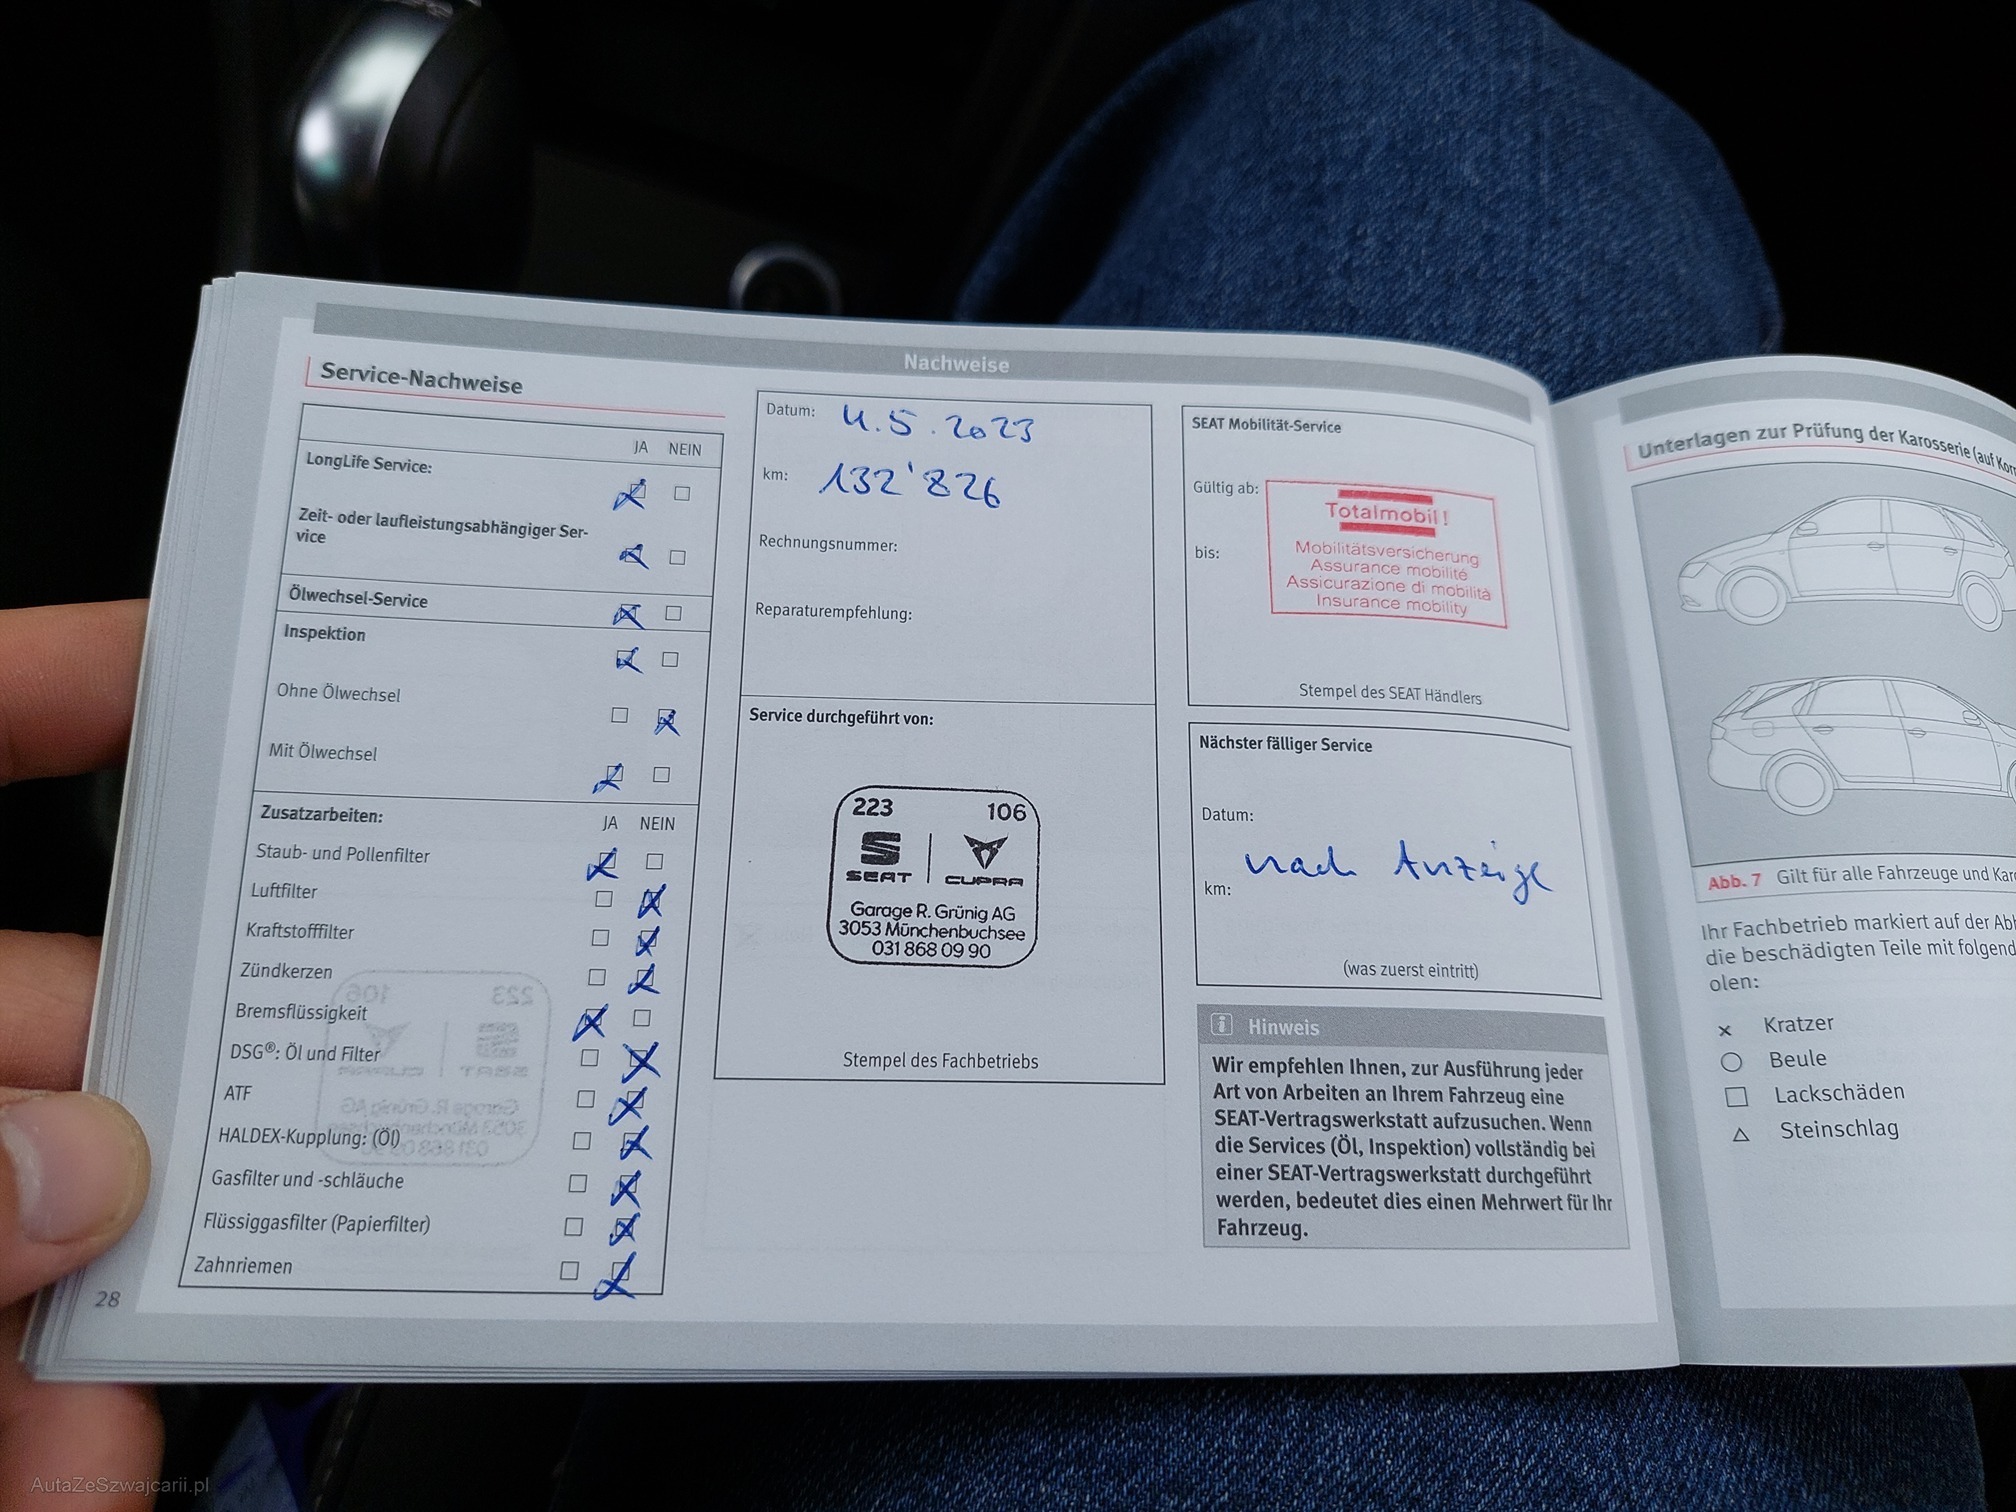 Nachweise
Service-Nachweise
JA NEIN
LongLife Service:
Zeit- oder laufleistungsabhängiger Ser-
vice
Ölwechsel-Service
Inspektion
Ohne Ölwechsel
Mit Ölwechsel
Zusatzarbeiten: JA NEIN
Staub- und Pollenfilter
Luftfilter
Kraftstofffilter
Zündkerzen
Bremsflüssigkeit
DSG®: Öl und Filter
ATF
HALDEX-Kupplung: (Öl)
Gasfilter und -schläuche
Flüssiggasfilter (Papierfilter)
Zahnriemen
28
Datum: 4.5.2023
km: 132'826
Rechnungsnummer:
Reparaturempfehlung:
Service durchgeführt von:
223 106
SEAT CUPRA
Garage R. Grünig AG
3053 Münchenbuchsee
031 868 09 90
Stempel des Fachbetriebs
SEAT Mobilität-Service
Gültig ab:
bis:
Totalmobil!
Mobilitätsversicherung
Assurance mobilité
Assicurazione di mobilità
Insurance mobility
Stempel des SEAT Händlers
Nächster fälliger Service
Datum:
nach Anzeige
km:
(was zuerst eintritt)
i Hinweis
Wir empfehlen Ihnen, zur Ausführung jeder
Art von Arbeiten an Ihrem Fahrzeug eine
SEAT-Vertragswerkstatt aufzusuchen. Wenn
die Services (Öl, Inspektion) vollständig bei
einer SEAT-Vertragswerkstatt durchgeführt
werden, bedeutet dies einen Mehrwert für Ihr
Fahrzeug.
Unterlagen zur Prüfung der Karosserie (auf
Abb. 7 Gilt für alle Fahrzeuge und
Ihr Fachbetrieb markiert auf der
die beschädigten Teile mit
olen:
Kratzer
Beule
Lackschäden
Steinschlag
AutaZeSzwajcarii.pl